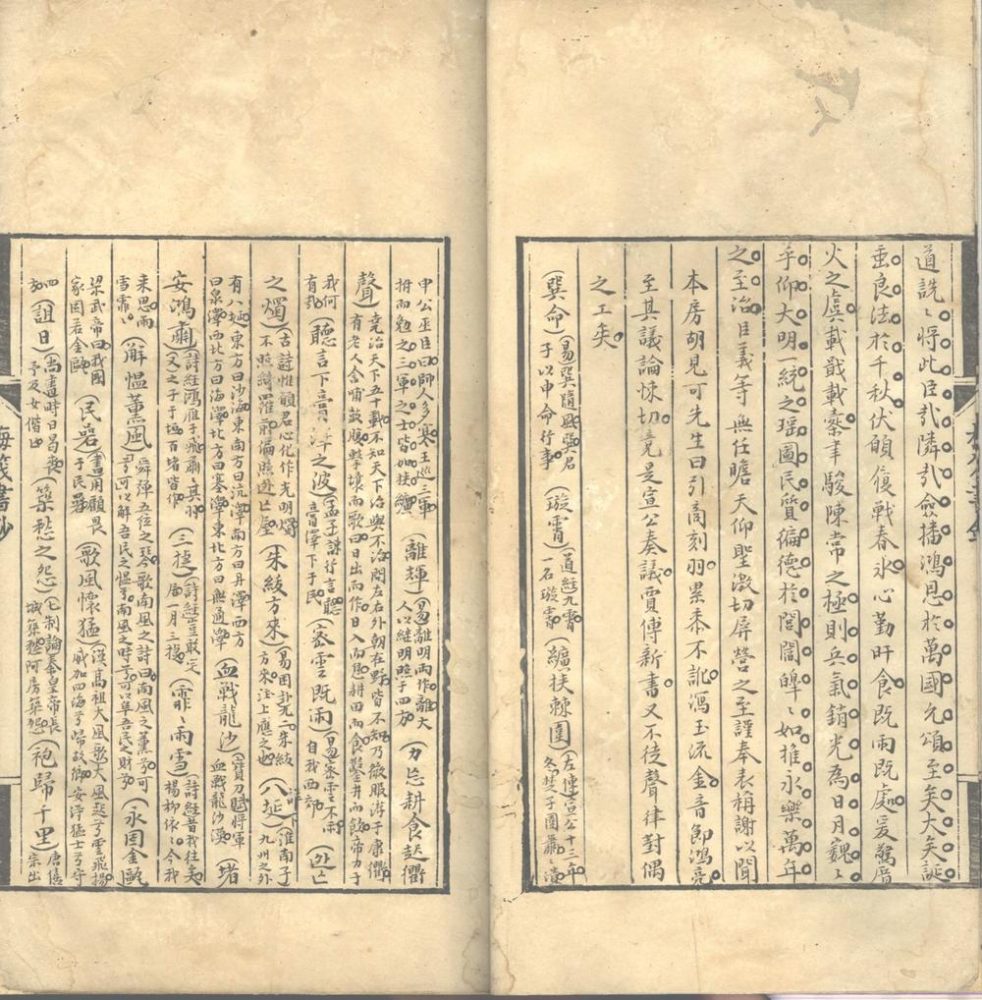 道說〻將此臣鄰儉播鴻恩於萬國允頌至矣大矣誕
垂良法於千秋伏願復戰春氷心勤旰食既雨既處爰舊
火之虞載戢載櫜聿駿陳常之極則兵氣銷光為日月巍〻
乎仰大明一統之瑶圖民質徧德於閭閻皡〻如推永樂萬年
之至治臣義等無任瞻天仰聖激切屏營之至謹奉表稱謝以聞
本房胡見可先生曰引商刻羽累黍不訛瀉玉流金音節鴻亮
至其議論悚切竟是宣公奏議賈傅新書又不徒聲律對偶
之工矣
(巽命)(易巽隨風巽君
子以申命行事)(璇霄)(道經九霄
一名璇霄)(纊挾棘圍)(左傳宣公十二年
冬楚子圍蕭〻潰
申公巫臣曰師人多寒王巡三軍
拊而勉之三軍之士皆如挾纊)(離輝)(易離明兩作離大
人以繼明照于四方)(力忘耕食起衢
聲)(堯治天下五十載不知天下治與不治問左右外朝在野皆不知乃微服游于康衢
有老人含哺鼓腹擊壤而歌曰日出而作日入而息耕田而食鑿井而飲帝力于
我何
有哉)(聽言下膏澤之波)(孟子諫行言聽
膏澤下于民)(密雲既雨)(易密雲不雨
自我西郊)(逃亡
之燭)(古詩惟願君心化作光明燭
不照綺羅筵偏照逃亡屋)(朱紱方來)(易困于二朱紱
方來注上應之也)(八埏)(淮南子
九州之外
有八埏東方曰沙海東南方曰沆澤南方曰丹澤西方
曰泉澤西北方曰海澤北方曰塞澤東北方曰無通澤)(血戰龍沙)(寶刀賦將軍
血戰龍沙漠)(堵
安鴻肅)(詩經鴻雁于飛肅〻其羽
又之子于垣百堵皆作)(三捷)(詩經豈敢定
居一月三捷)(霏〻雨雪)(詩經昔我往矣
楊柳依〻今我
來思雨
雪霏〻)(解愠薰風)(舜彈五弦之琴歌南風之詩曰南風之薰兮可
以解吾民之愠兮南風之時兮可以阜吾民之財兮)(永固金甌
梁武帝曰我國
家固若金甌)(民喦)(書用顧畏
于民喦)(歌風懷猛)(漢高祖大風歌大風起兮雲飛揚
威加四海兮歸故鄉安得猛士兮守
四
方)(詛日)(尚書時日曷喪
予及女偕亡)(築愁之怨)(秦皇帝長
城築愁阿房築怨)(袍歸千里)(唐僖
宗出